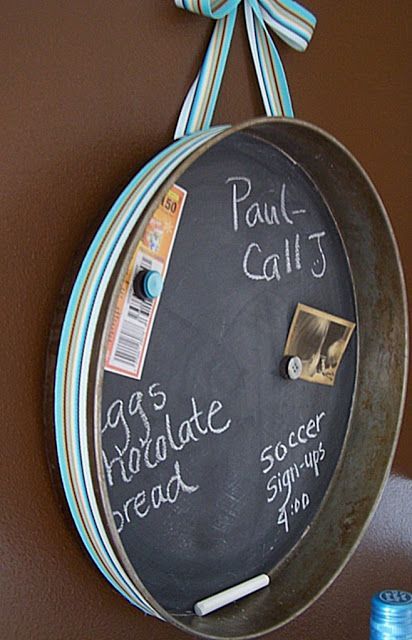 Paul-
Call J
50
eggs
chocolate
bread
soccer
sign-ups
4:00